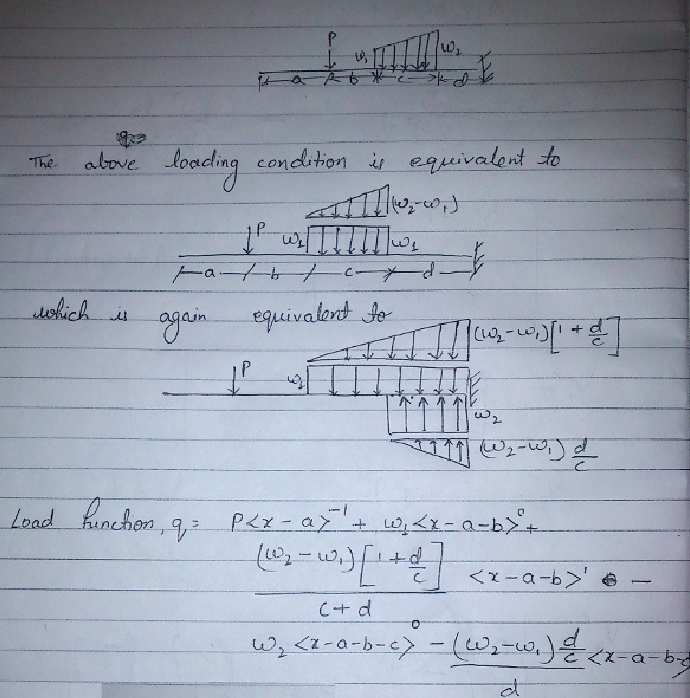 P
w₁ w₂
a b c d
The above loading condition is equivalent to
(w₂-w₁)
P w₁ w₁
a b c d
which is again equivalent to
(w₂-w₁)[1+d/c]
P w₁
w₂
(w₂-w₁) d/c
Load function, q = P<x-a>⁻¹ + w₁<x-a-b>⁰ +
(w₂-w₁)[1+d/c]
<x-a-b>¹ -
c+d
w₂<x-a-b-c>⁰ - (w₂-w₁) d/c <x-a-b-c
d